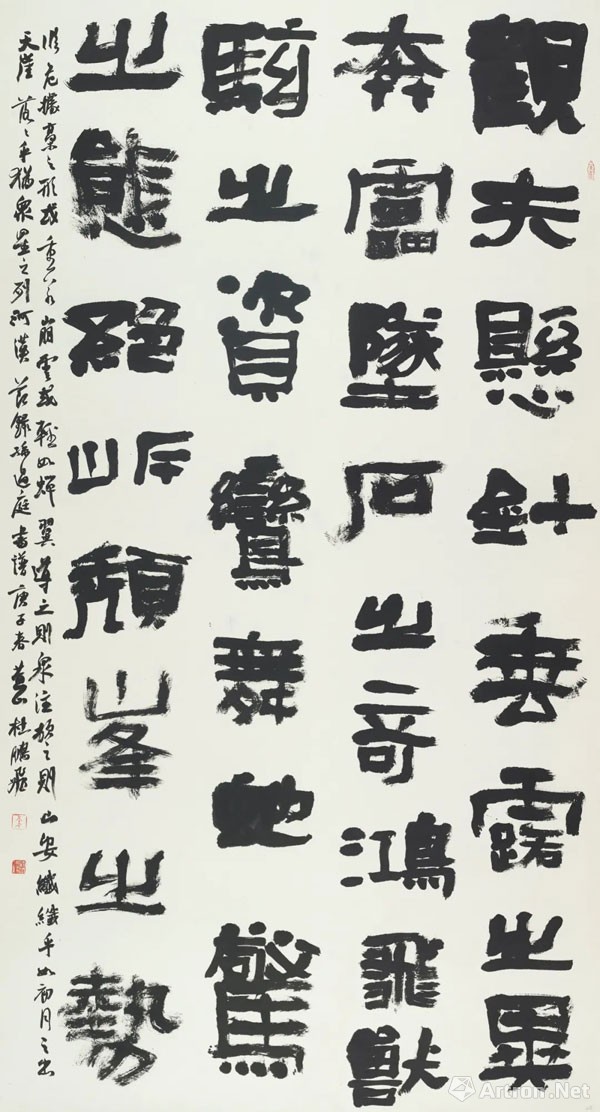 觀夫懸針垂露之異
奔雷墜石之奇鴻飛獸
駭之資鸞舞蛇驚
之態絕岸頹峯之勢
臨危據槀之形或重若崩雲或輕如蟬翼導之則泉注頓之則山安纖纖乎如初月之出
天崖落落乎猶衆星之列河漢 節錄孫過庭書譜庚子春杜鵬飛
Artron.Net